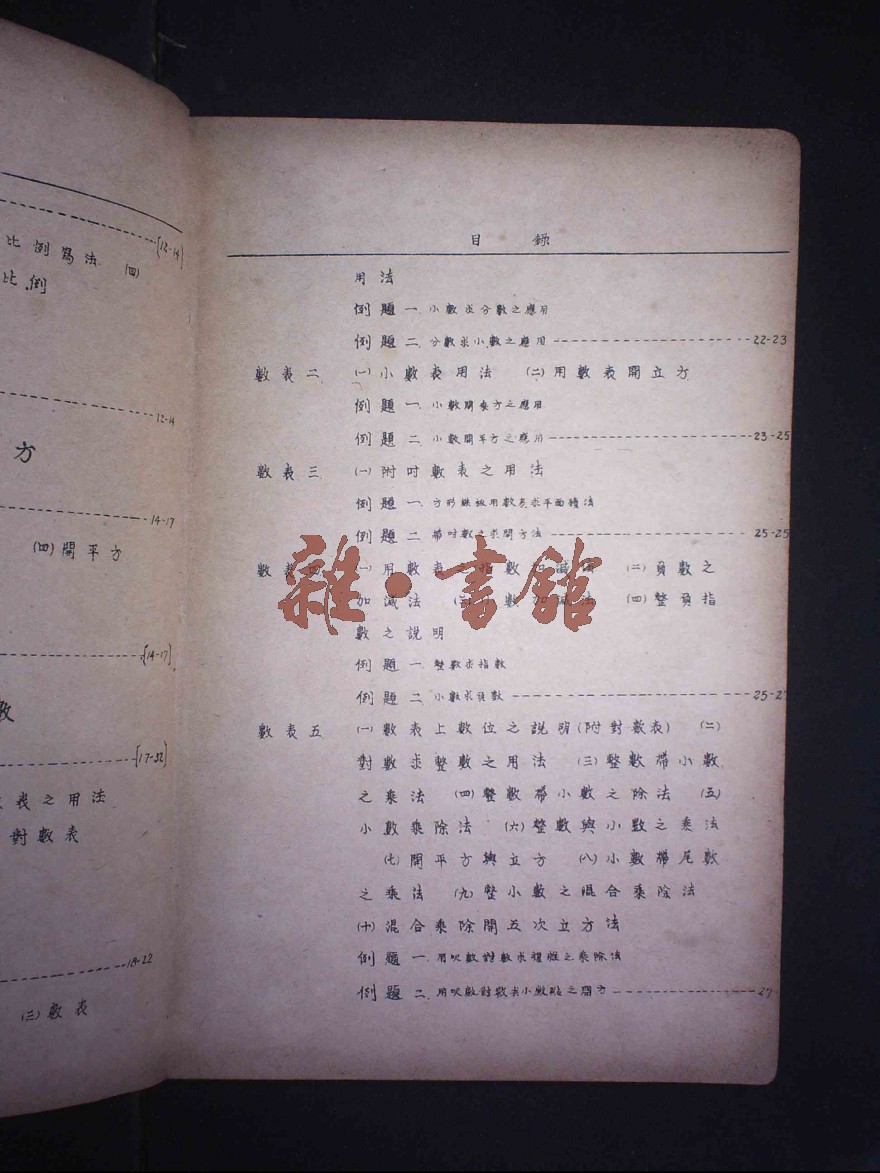 比例爲法 ㈣
[12-14]
比例
12-14
方
14-17
㈣開平方
[14-17]
數
[17-32]
表之用法
對數表
18-22
㈢數表
目錄
用法
例題一 小數求分數之應用
例題二 分數求小數之應用 22-23
數表二 ㈠小數表用法 ㈡用數表開立方
例題一 小數開乘方之應用
例題二 小數開平方之應用 23-25
數表三 ㈠附吋數表之用法
例題一 方形鉄板用數表求平面積法
例題二 帶吋數之求開方法 25-25
數表四 ㈠用數表之指數加減法 ㈡負數之
加減法 ㈢小數加減法 ㈣整負指
數之說明
例題一 整數求指數
例題二 小數求負數 25-2
數表五 ㈠數表上數位之說明(附對數表) ㈡
對數求整數之用法 ㈢整數帶小數
之乘法 ㈣整數帶小數之除法 ㈤
小數乘除法 ㈥整數與小數之乘法
㈦開平方與立方 ㈧小數帶尾數
之乘法 ㈨整小數之混合乘除法
㈩混合乘除開五次立方法
例題一 用呎數對數求之乘除法
例題二 用呎數對數求小數點之開方 27
雜·書館